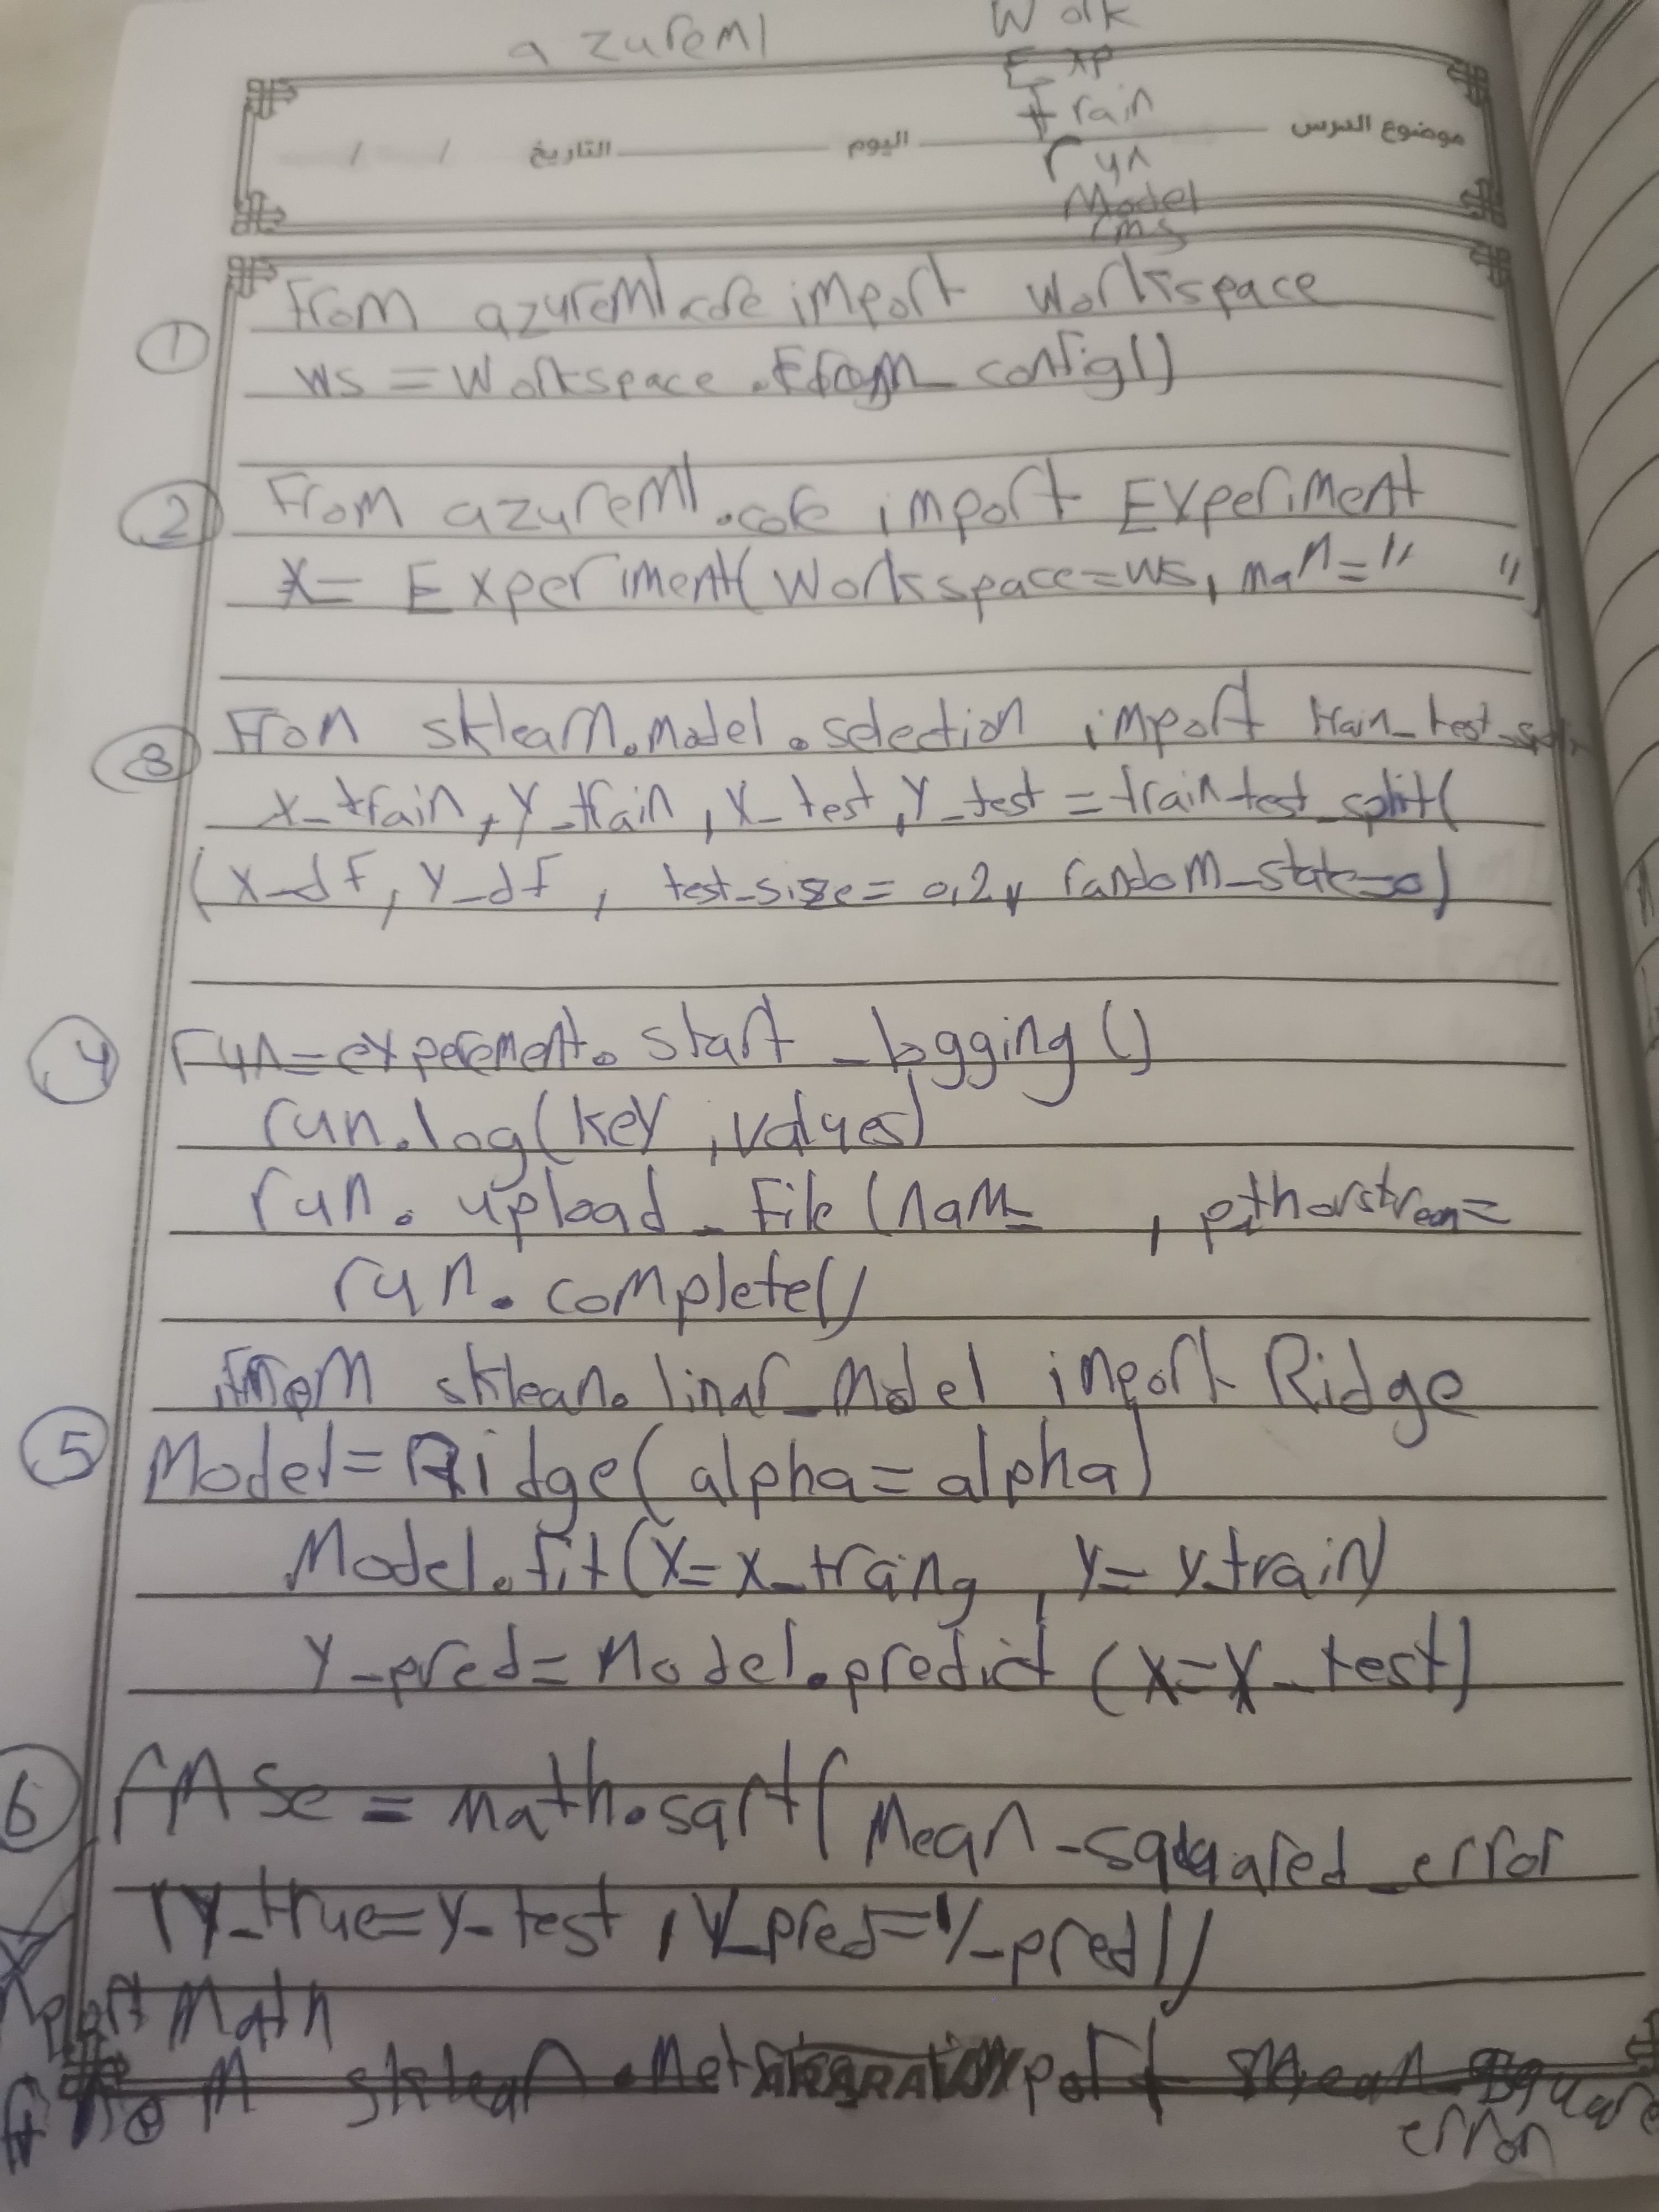 azureml
Work
Exp
train
run
Model
rms
موضوع الدرس اليوم التاريخ / /
① From azureml.core import Workspace
ws = Workspace.from_config()
② From azureml.core import Experiment
X = Experiment(Workspace=ws, man=" "
③ From sklearn.model.selection import train_test_split
X_train, Y_train, X_test, Y_test = train test_split(
(X_df, Y_df, test_size= 0,2, random_state=0)
④ run=experement.start_logging()
run.log(key, values)
run.upload_File(nam= , pathorstream=
run.complete()
From sklean.linar_model import Ridge
⑤ Model=Ridge(alpha=alpha)
Model.fit(X=X_train, Y=Y_train)
Y_pred=Model.predict(X=X_test)
⑥ rMSe = math.sqrt(Mean_squared_error
(Y_true=Y_test, Y_pred=Y_pred))
import Math
from sklearn.Metrics import Mean_square
error